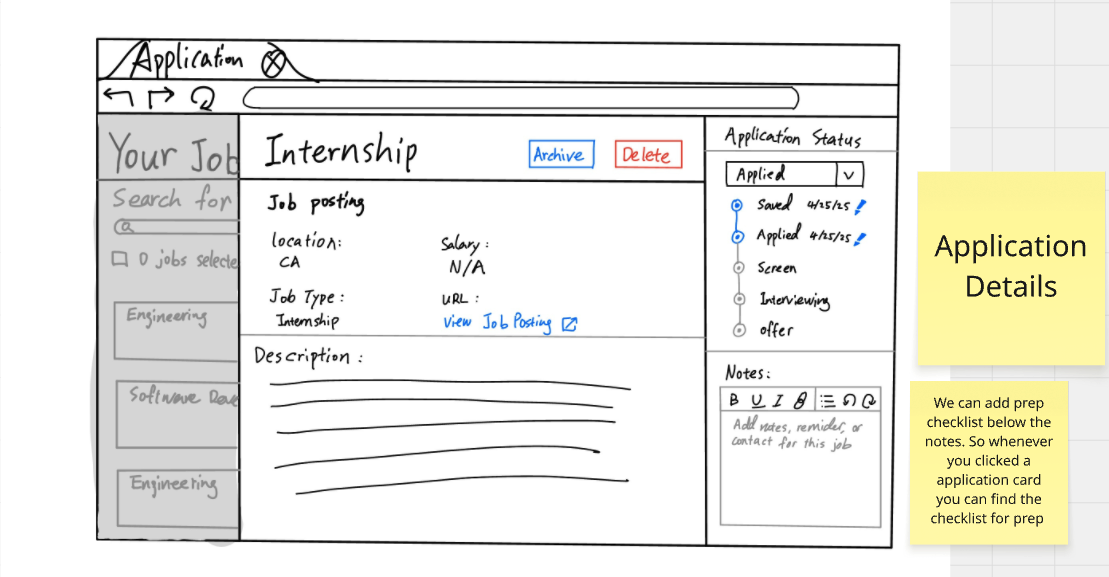 Application
Your Job
Search for
0 jobs selecte
Engineering
Software Deve
Engineering
Internship
Archive
Delete
Job posting
location:
CA
Salary:
N/A
Job Type:
Internship
URL:
View Job Posting
Description:
Application Status
Applied
Saved 4/25/25
Applied 4/25/25
Screen
Interviewing
offer
Notes:
B U I
Add notes, remider, or
contact for this job
Application
Details
We can add prep
checklist below the
notes. So whenever
you clicked a
application card
you can find the
checklist for prep